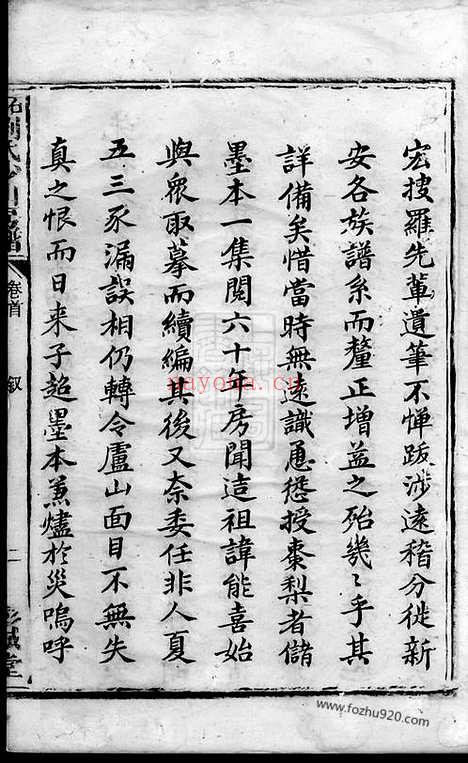 宏搜羅先軰遺筆不憚跋涉遠稽分徙新
安各族譜系而釐正增益之殆幾〻乎其
詳備矣惜當時無遠識慂授棗梨者儲
墨本一集閱六十年房聞造祖諱能喜始
與衆取摹而續編其後又奈委任非人夏
五三豕漏誤相仍轉令廬山面目不無失
真之恨而日来子超墨本兼燼於災嗚呼
卷首
叙
二
彭城堂
nayona.cn
www.fozhu920.com